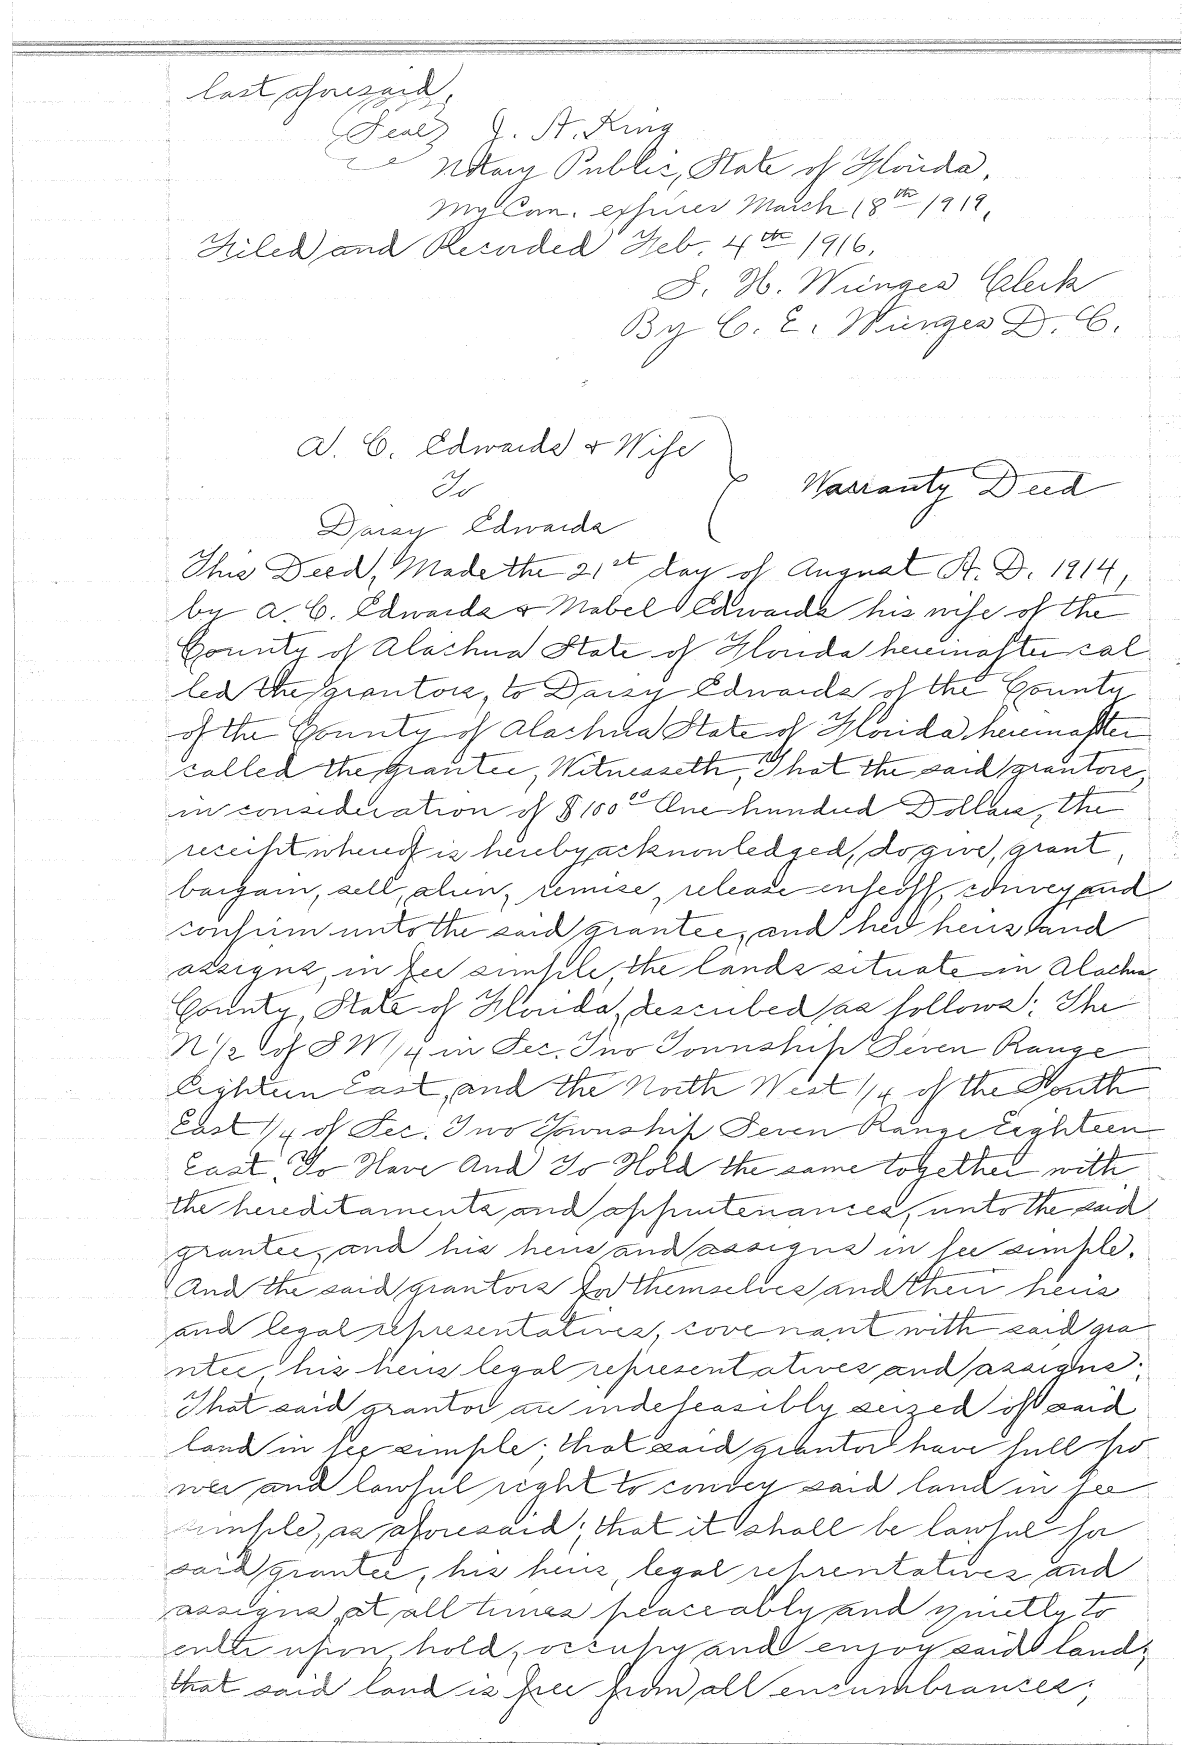 last aforesaid,
(Seal) J. A. King
Notary Public, State of Florida,
My Com. expires March 18th 1919,
Filed and Recorded Feb. 4th 1916.
S. H. Wienges Clerk
By C. E. Wienges D. C.
A. C. Edwards & Wife
To
Warranty Deed
Daisy Edwards
This Deed, Made the 21st day of August A. D. 1914,
by A. C. Edwards & Mabel Edwards his wife of the
County of Alachua State of Florida hereinafter cal
led the grantors, to Daisy Edwards of the County
of the County of Alachua State of Florida hereinafter
called the grantee, Witnesseth, That the said grantors,
in consideration of $100.00 One hundred Dollars, the
receipt whereof is hereby acknowledged, do give, grant,
bargain, sell, alien, remise, release enfeoff, convey and
confirm unto the said grantee, and her heirs and
assigns, in fee simple, the lands situate in Alachua
County, State of Florida, described as follows: The
N 1/2 of S W 1/4 in Sec. Two Township Seven Range
Eighteen East, and the North West 1/4 of the South
East 1/4 of Sec. Two Township Seven Range Eighteen
East. To Have And To Hold the same together with
the hereditaments and appurtenances, unto the said
grantee, and his heirs and assigns in fee simple.
And the said grantors for themselves and their heirs
and legal representatives, covenant with said gra
ntee, his heirs legal representatives and assigns:
That said grantor are indefeasibly seized of said
land in fee simple; that said grantor have full po
wer and lawful right to convey said land in fee
simple, as aforesaid; that it shall be lawful for
said grantee, his heirs, legal reprentatives and
assigns, at all times peaceably and quietly to
enter upon, hold, occupy and enjoy said land;
that said land is free from all encumbrances;